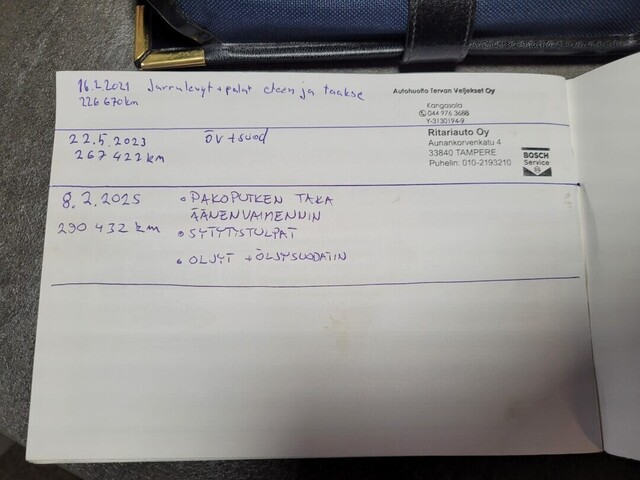 16.2.2021 Jarrulevyt + palat eteen ja taakse
226 670km
Autohuolto Tervan Veljekset Oy
Kangasala
044 976 3688
Y-3130194-9
22.5.2023 ÖV + suod
267 422 km
Ritariauto Oy
Aunankorvenkatu 4
33840 TAMPERE
Puhelin: 010-2193210
BOSCH
Service
8.2.2025 • PAKOPUTKEN TAKA
ÄÄNENVAIMENNIN
290 432 km • SYTYTYSTULPAT
• ÖLJYT + ÖLJYSUODATIN